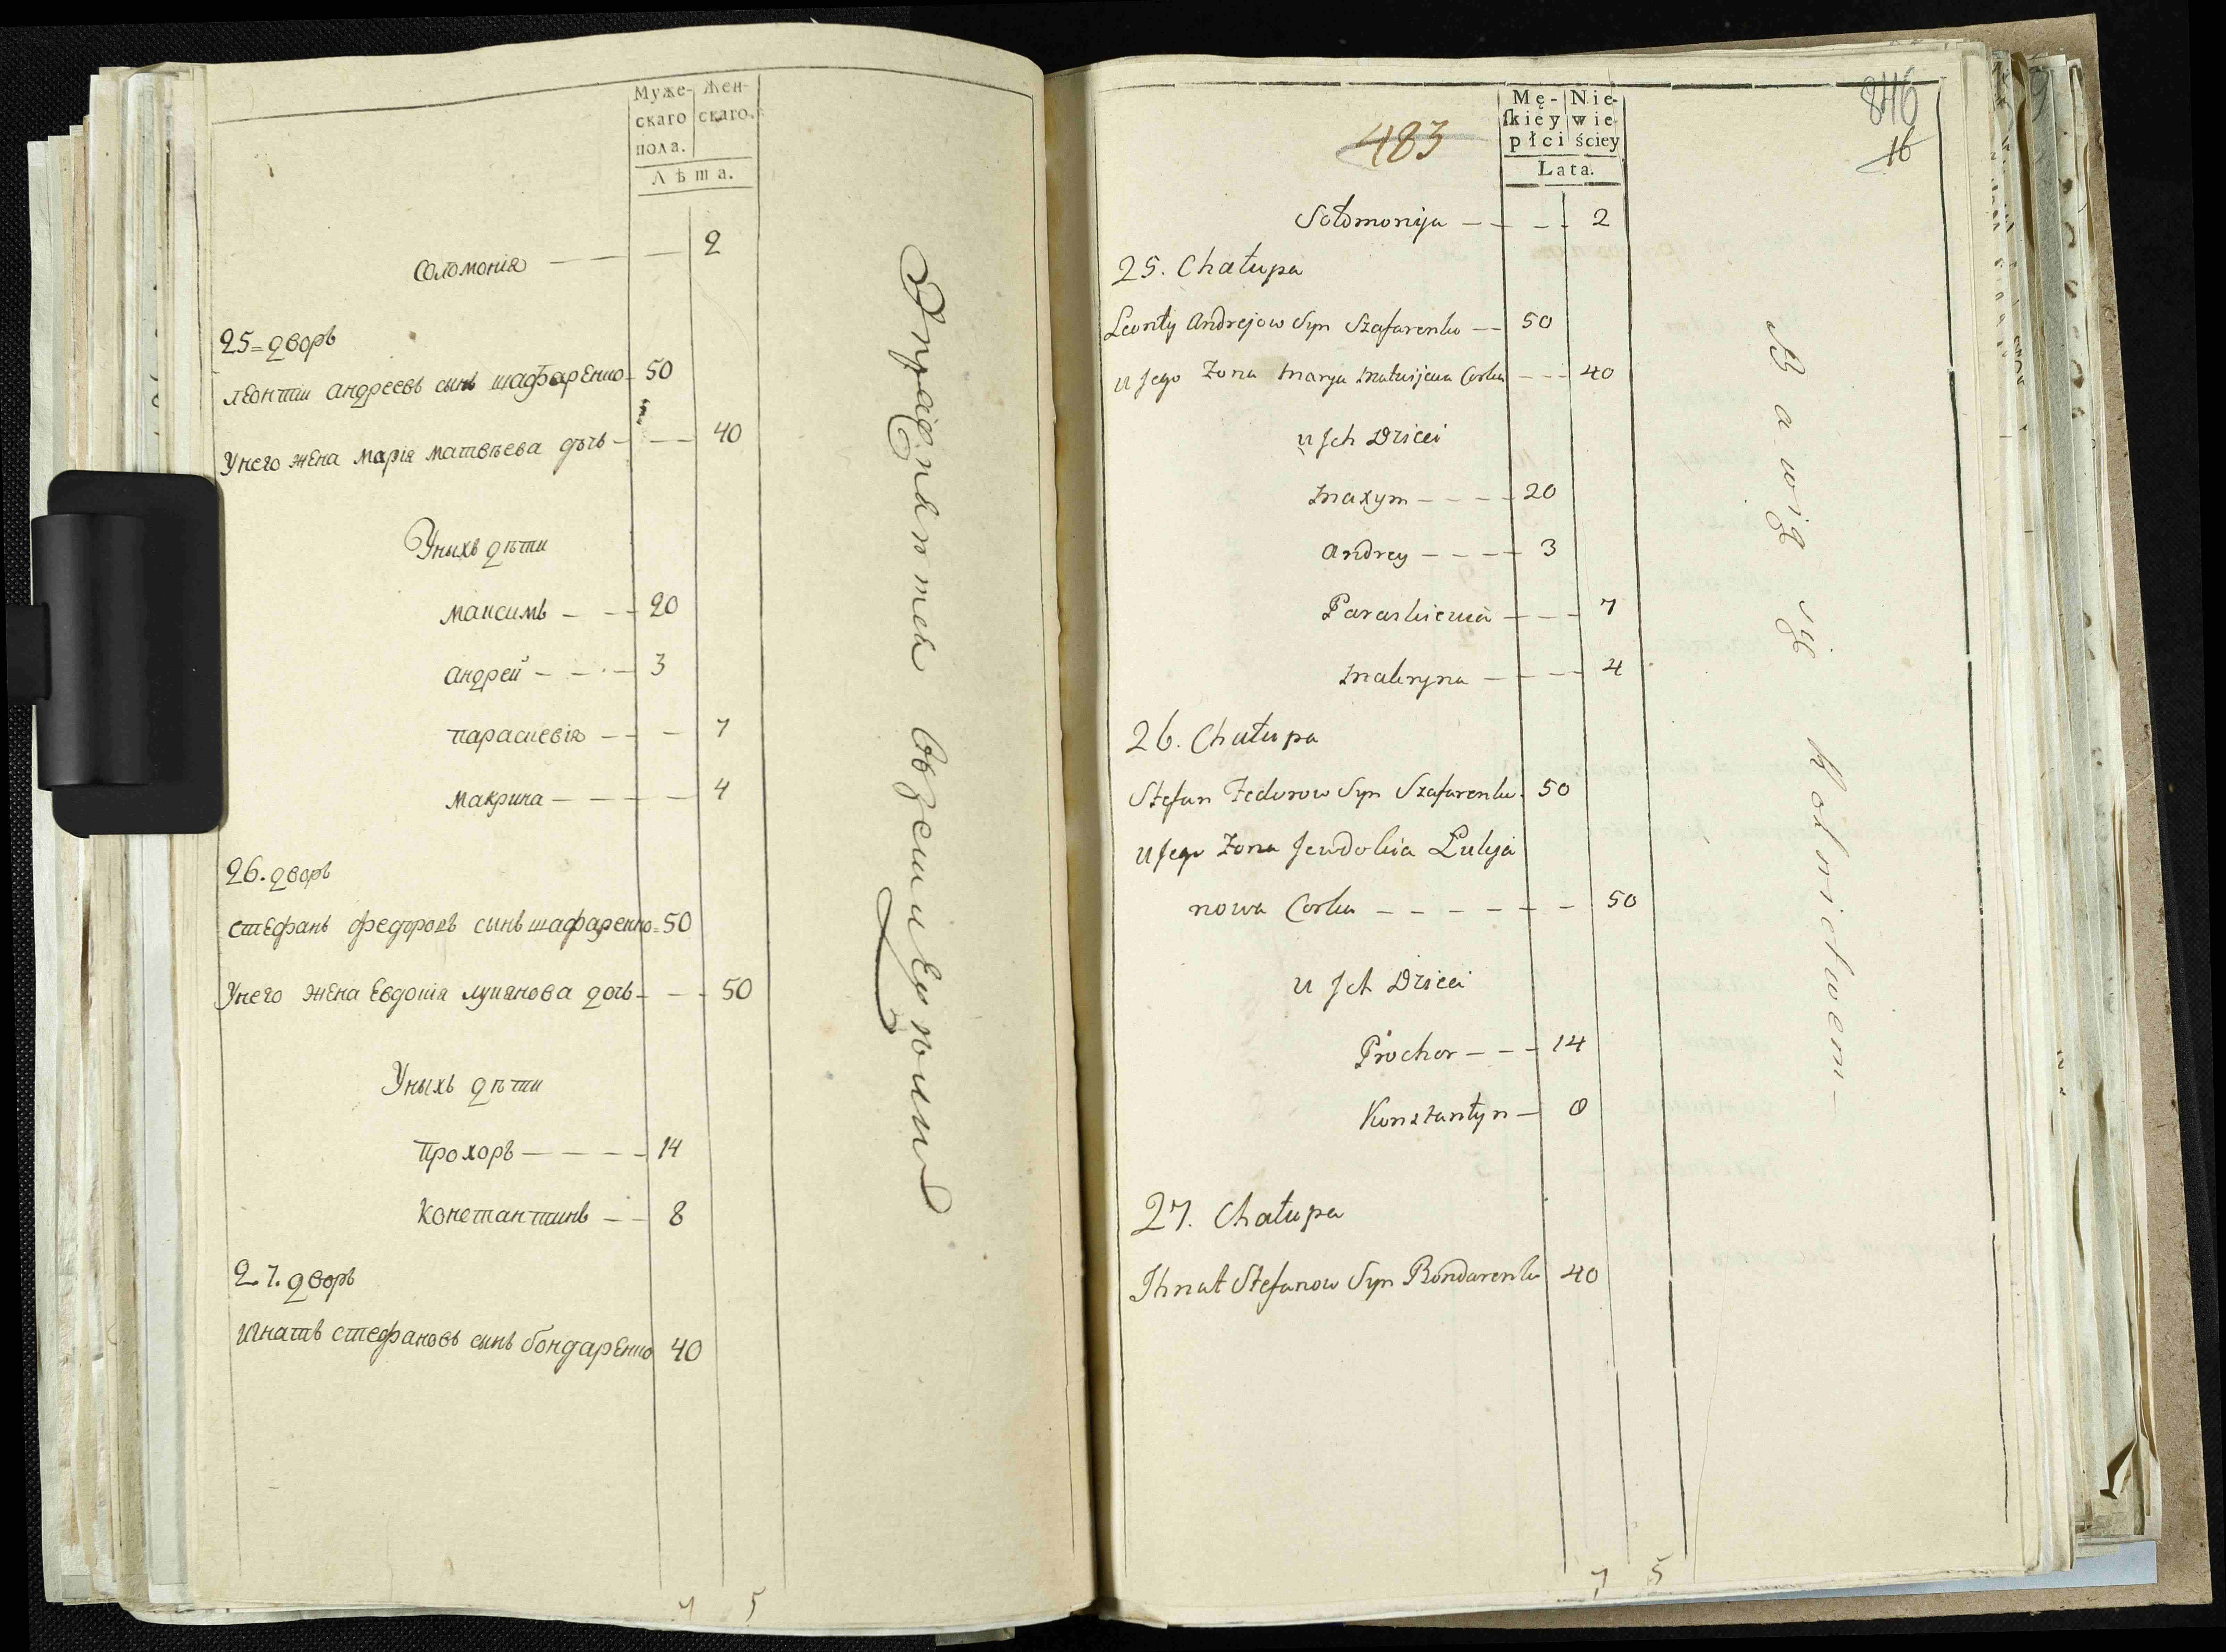 Муже-
скаго
пола.
Жен-
скаго.
Лѣта.
Соломонія — — — 2
25=дворъ
Леонтіи андреевъ сынъ шафаренко 50
Унего жена марія матвѣева дочь — — 40
Уныхъ дѣти
максимъ — — 20
андрей — — — 3
параскевія — — — 7
макрина — — — — 4
26. дворъ
стефанъ федоровъ сынъ шафаренко = 50
Унего жена Евдокія лукянова дочь — — 50
Уныхъ дѣти
Прохоръ — — — — 14
Константинъ — — 8
27. дворъ
игнатъ стефановъ сынъ бондаренко 40
Упражняются въ земледѣлии
7 5
483
846
16
Mę-
ſkiey
płci
Nie-
wie-
ściey
Lata.
Sołomonija — — — — 2
25. Chałupa
Leonty Andrejow Syn Szafarenko — — 50
u Jego Żona Marya Matwijewa Corka — — — 40
u Jch Dzieci
Maxym — — — — 20
Andrey — — — — 3
Paraskiewia — — — 7
Makryna — — — — 4
26. Chałupa
Stefan Fedorow Syn Szafarenko. 50
u Jego Żona Jewdokia Lukja
nowa Corka — — — — — — 50
u Jch Dzieci
Prochor — — — 14
Konstantyn — 8
27. Chałupa
Ihnat Stefanow Syn Bondarenko 40
Bawią się Rolnictwem —
7 5